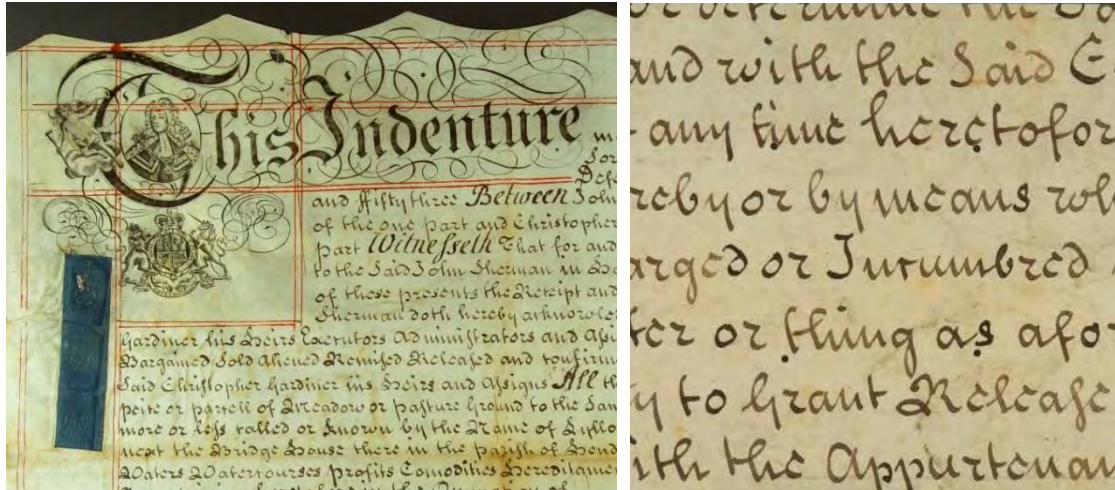 This Indenture
and ffifty three Between John
of the one part and Christopher
part Witnesseth That for and
to the Said John Sherman in
of these presents the Receipt and
Sherman doth hereby acknowled
Gardiner his Heirs Executors Administrators and Assi
Bargained Sold Aliened Remised Released and confirm
Said Christopher Gardiner his Heirs and Assigns All th
peice or parcell of Meadow or pasture Ground to the Sam
more or less called or known by the Name of
next the Bridge House there in the parish of Hend
Waters Watercourses profits Comodities Hereditamen
and with the Said E
any time heretofor
reby or by means wh
arged or Incumbred
ter or thing as afo
y to Grant Release
ith the Appurtenan